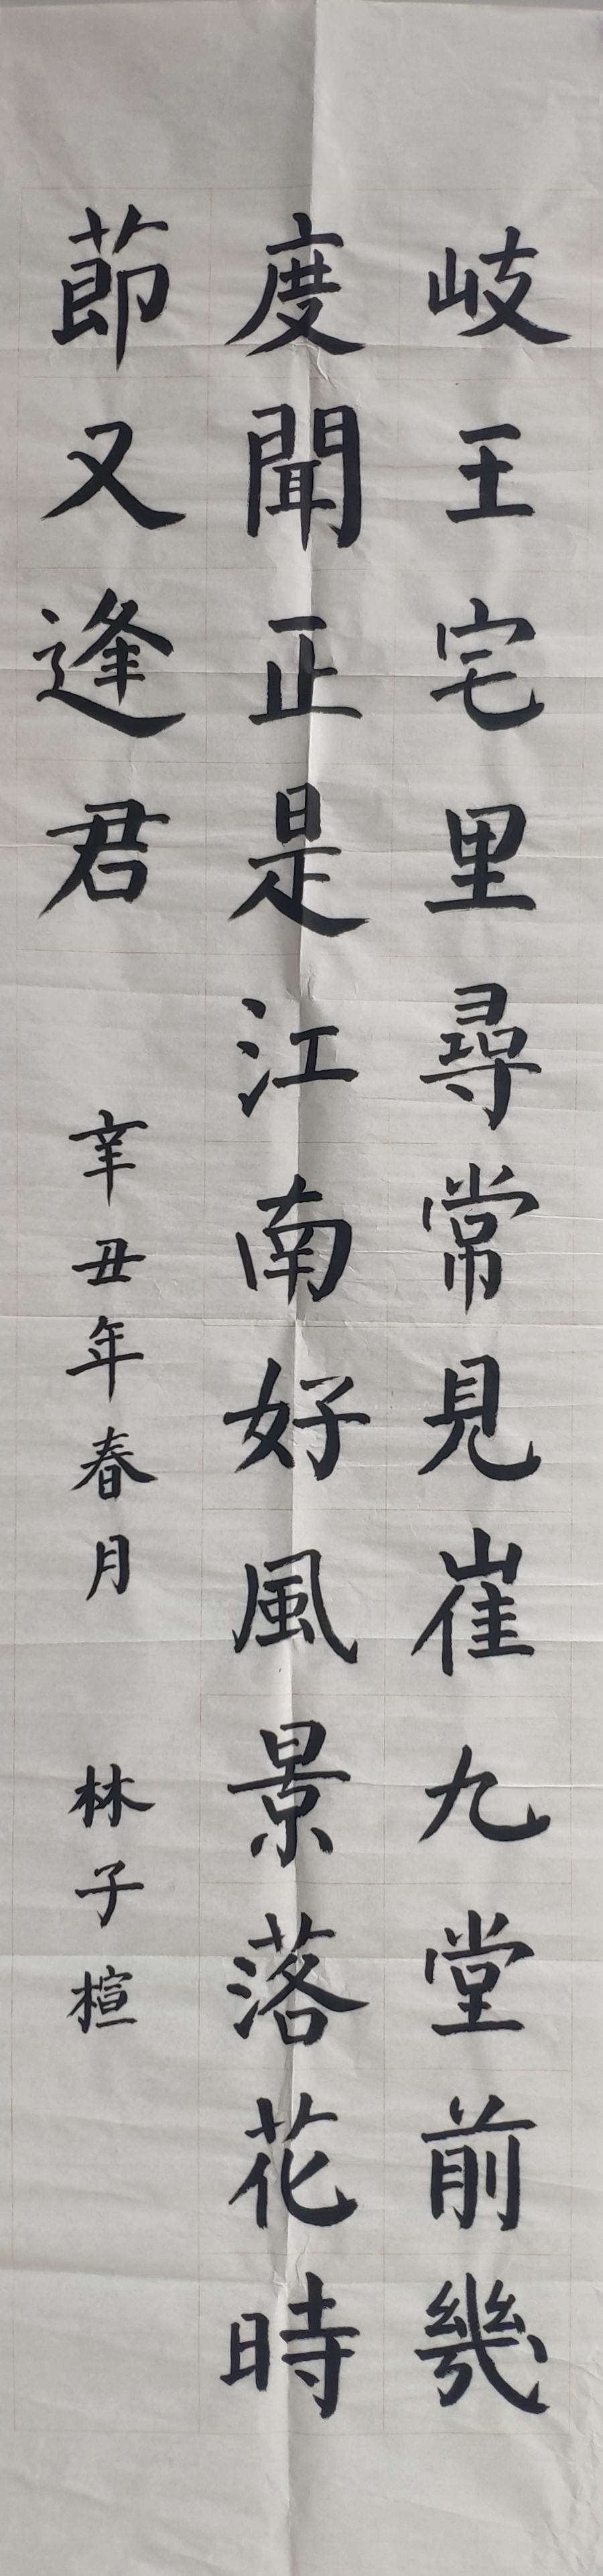 岐王宅里尋常見崔九堂前幾
度聞正是江南好風景落花時
節又逢君 辛丑年春月 林子楦